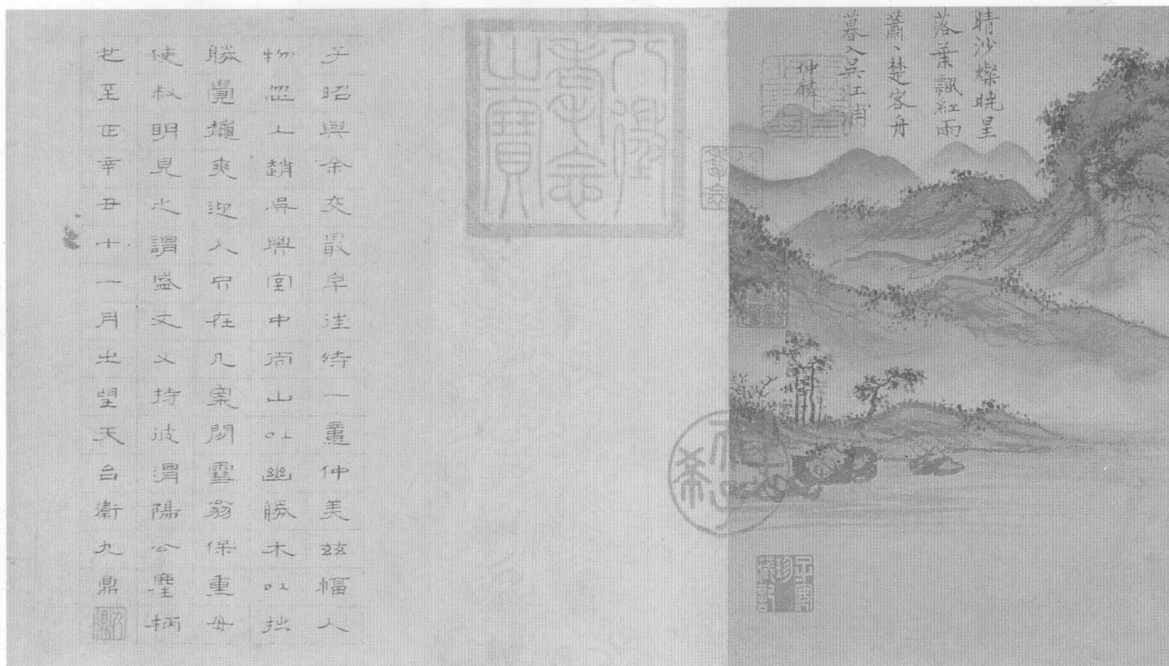 晴沙燦曉星
落葉飄紅雨
蕭〻楚客舟
暮入吳江浦
八徵耄念之寶
古希天子
子昭與余交最早往待一畫仲美茲幅人
物忽上趙吳興室中而山以幽勝木以拙
勝覺龝爽迎人只在几案間雪翁保重毋
使叔明見之謂盛文又持彼渭陽公麈柄
也至正辛丑十一月之望天台衛九鼎